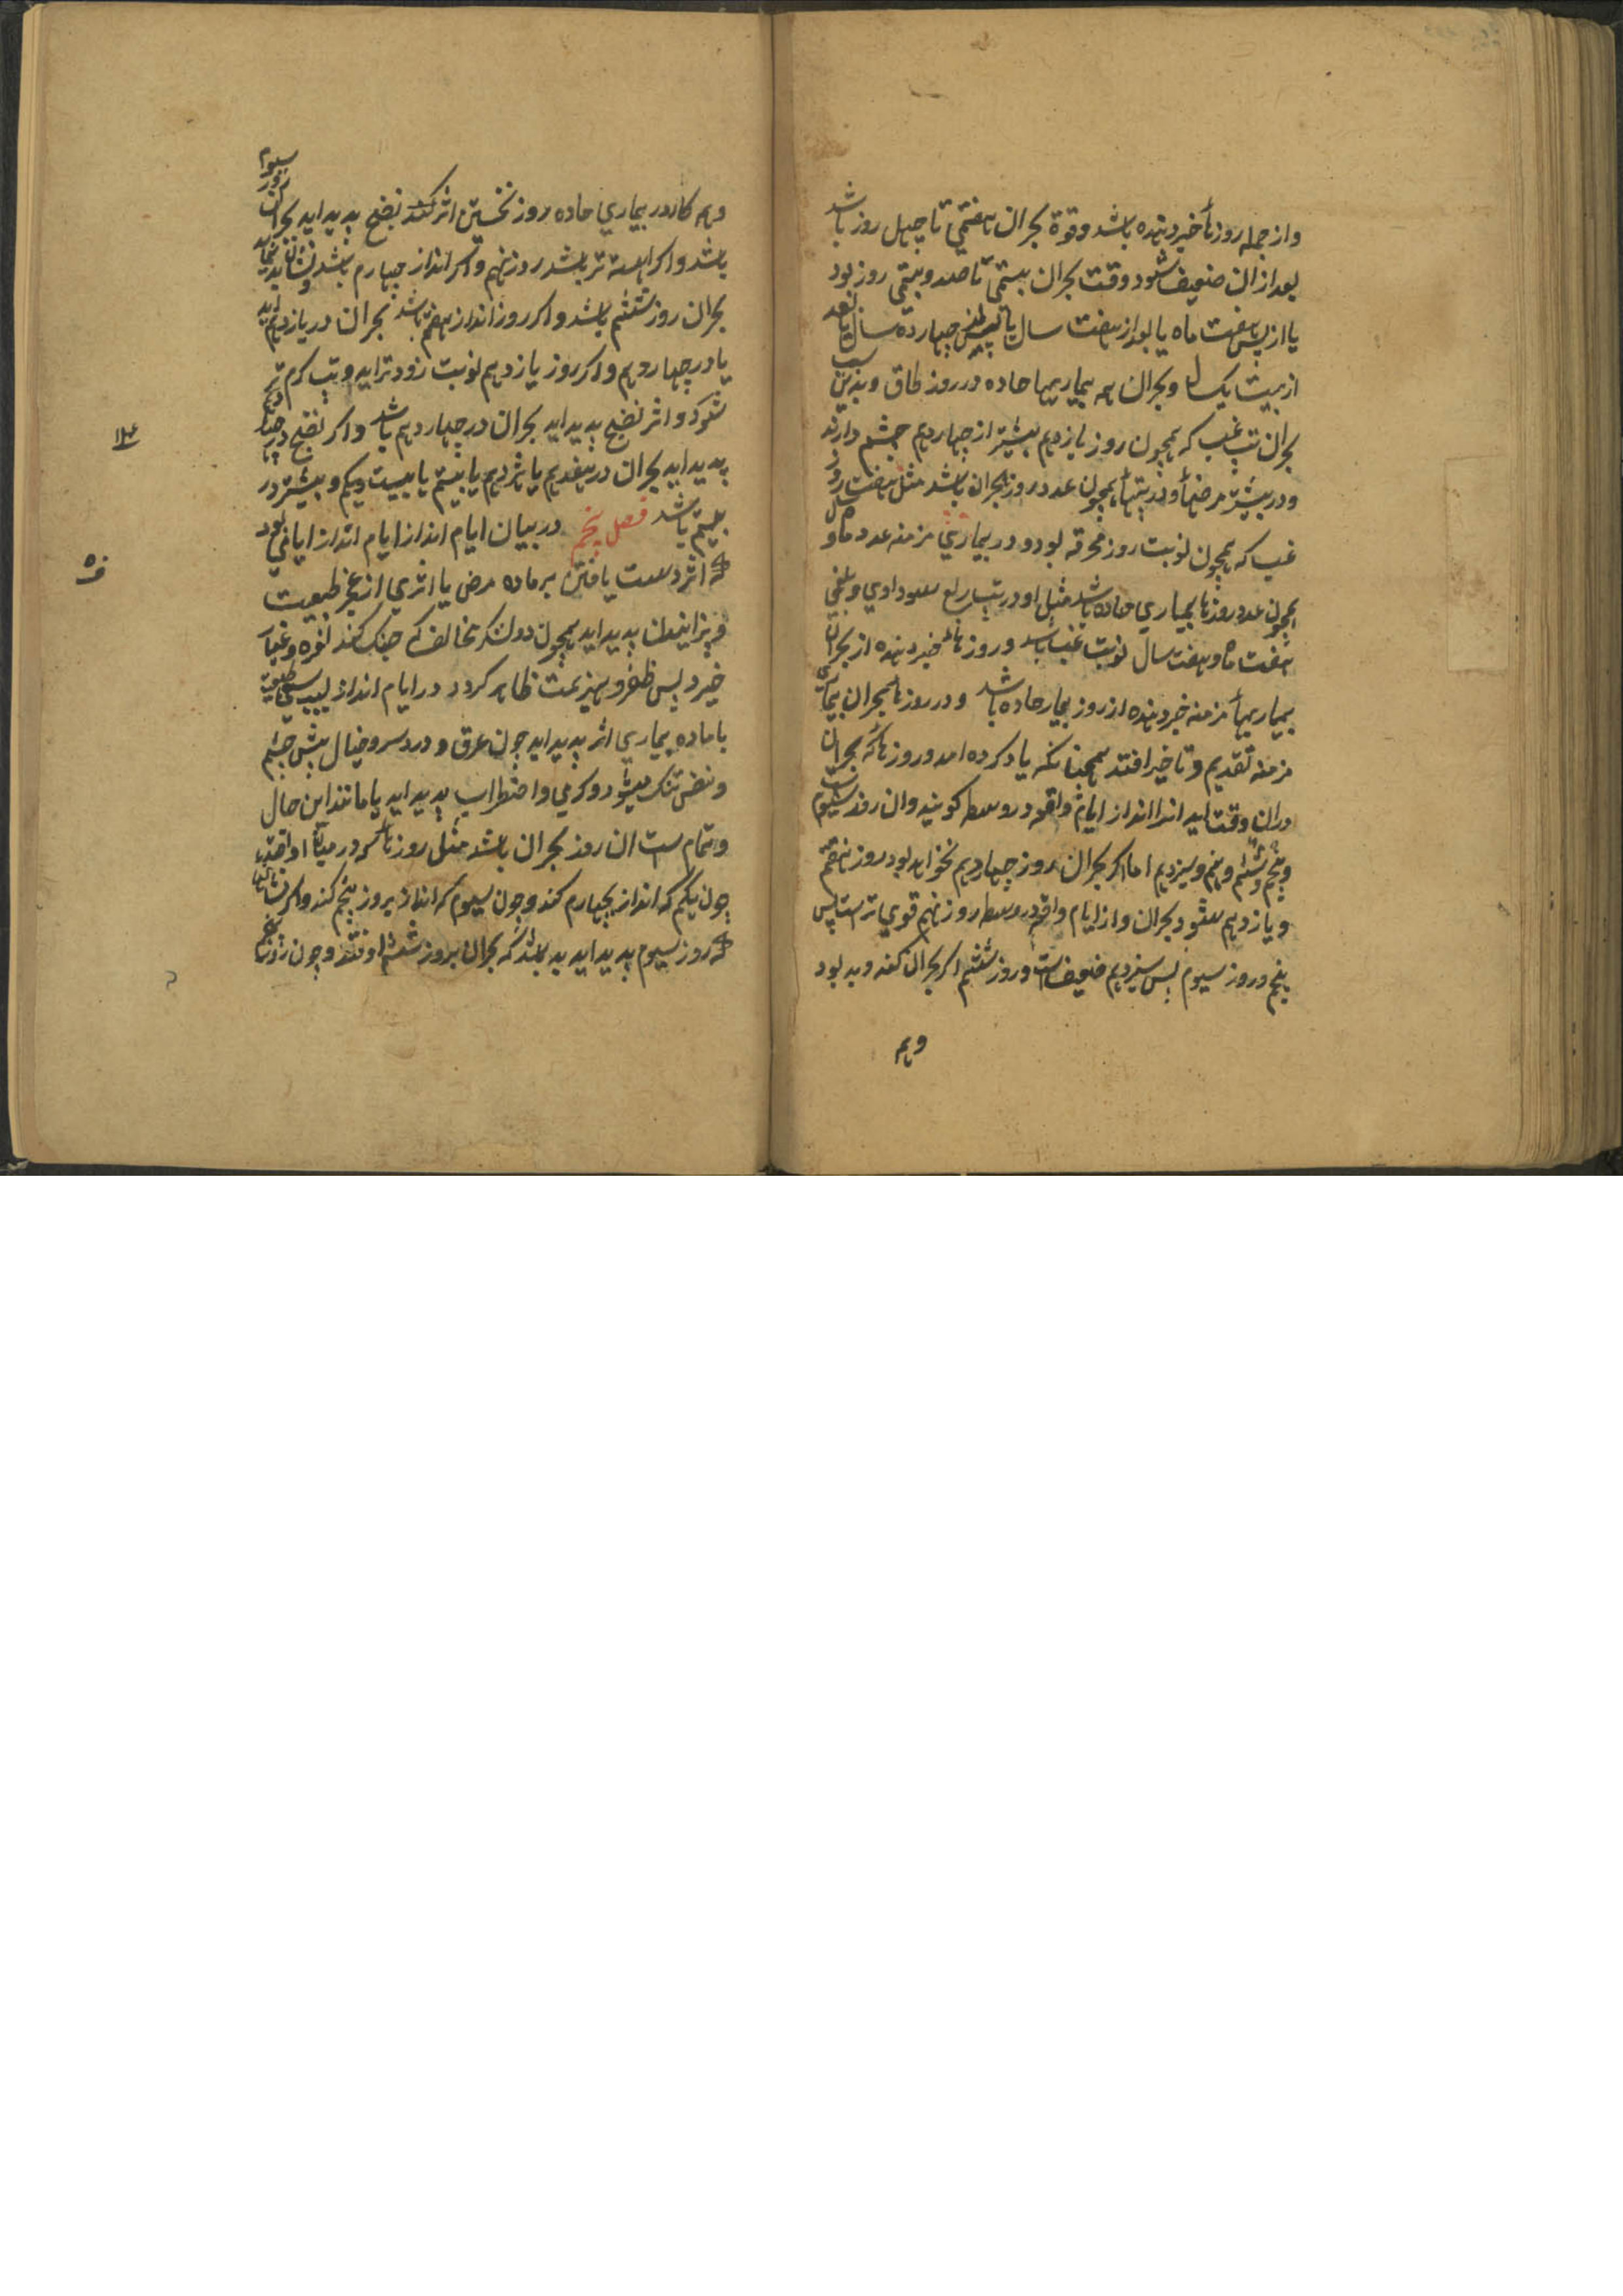 واز جمله روزها خبر دهنده باشد وقوة بحران هفتمی تا چهل روز باشد
بعد از ان ضعیف شود وقت بحران بیستمی تا صد وبیستی روز بود
یا از پس هفت ماه یا بعد از هفت سال یا چهارده سال یا بعد
از بیست یک وبحران همه بیماریها حاده در روز طاق وبدین سبب
بحران تب غب که همچون روز یازدهم بیشتر از چهاردهم چشم دارند
ودر بیشتر مرضها ودر تبها همچون عدد روز بحران باشد مثل هفت روز
غب که همچون نوبت روز محرقه بود ودر بیماری مزمنه عدد ماه و
همچون عدد روزها بیماری حاده باشد مثل او در تب ربع سوداوی وبلغمی
هفت ماه وهفت سال نوبت غب باشد وروزها خبر دهنده از بحران
بیماریها مزمنه خبر دهنده از روز بیمار حاده باشد ودر روزها بحران
مزمنه تقدیم وتاخیر افتد همچنانکه یاد کرده امد وروزها که بحران
دران وقت اید انرا انداز ایام واقع در وسط کویند وان روز سیوم
وپنجم وششم ونهم وسیزدهم اما اکر بحران روز چهاردهم نخواهد بود روز هفتم
ویازدهم شود بحران واز ایام واقع در وسط روز نهم قوی ترست پس
پنجم وروز سیوم پس سیزدهم ضعیف است وروز ششم اکر بحران کند وبد بود
وهم
وهر کاه در بیماری حاده روز نخستین اثر کند نضج پدید اید بحران روز سیوم
باشد واکر اهسته تر باشد روز نهم واکر انداز چهارم باشد ونشان بد
بحران روز ششم باشد واکر روز انداز هفتم باشد بحران در یازدهم اید
یا در چهاردهم واکر روز یازدهم نوبت زودتر اید وتب کرم تر
شود واثر نضج پدید اید بحران در چهاردهم باشد واکر نضج در چهاردهم
پدید اید بحران در هفدهم یا هژدهم یا بیستم یا بیست ویکم وبیشتر در
بیستم باشد فصل پنجم در بیان ایام انداز ایام انداز ایامی بود
که اثر دست یافتن بر ماده مرض یا اثری از عجز طبیعت
پدید اید همچون دو لشکر مخالف که جنک کنند نعره وغبار
خیزد پس ظفر وهزیمت ظاهر کردد در ایام انداز سبب سعی طبیعت
با ماده بیماری اثر پدید اید چون عرق ودرد سر وخیال پیش چشم
ونفس تنک میشود وکرمی واضطراب پدید اید یا مانند این حال
وتمام ست ان روز بحران باشد مثل روزها که در میان واقعند
چون یکم که انداز بچهارم کند وچون سیوم که انداز بروز پنجم کند واکر نشانها
که روز سیوم پدید اید بد باشد که بحران بروز ششم اوفتد وچون روز پنجم